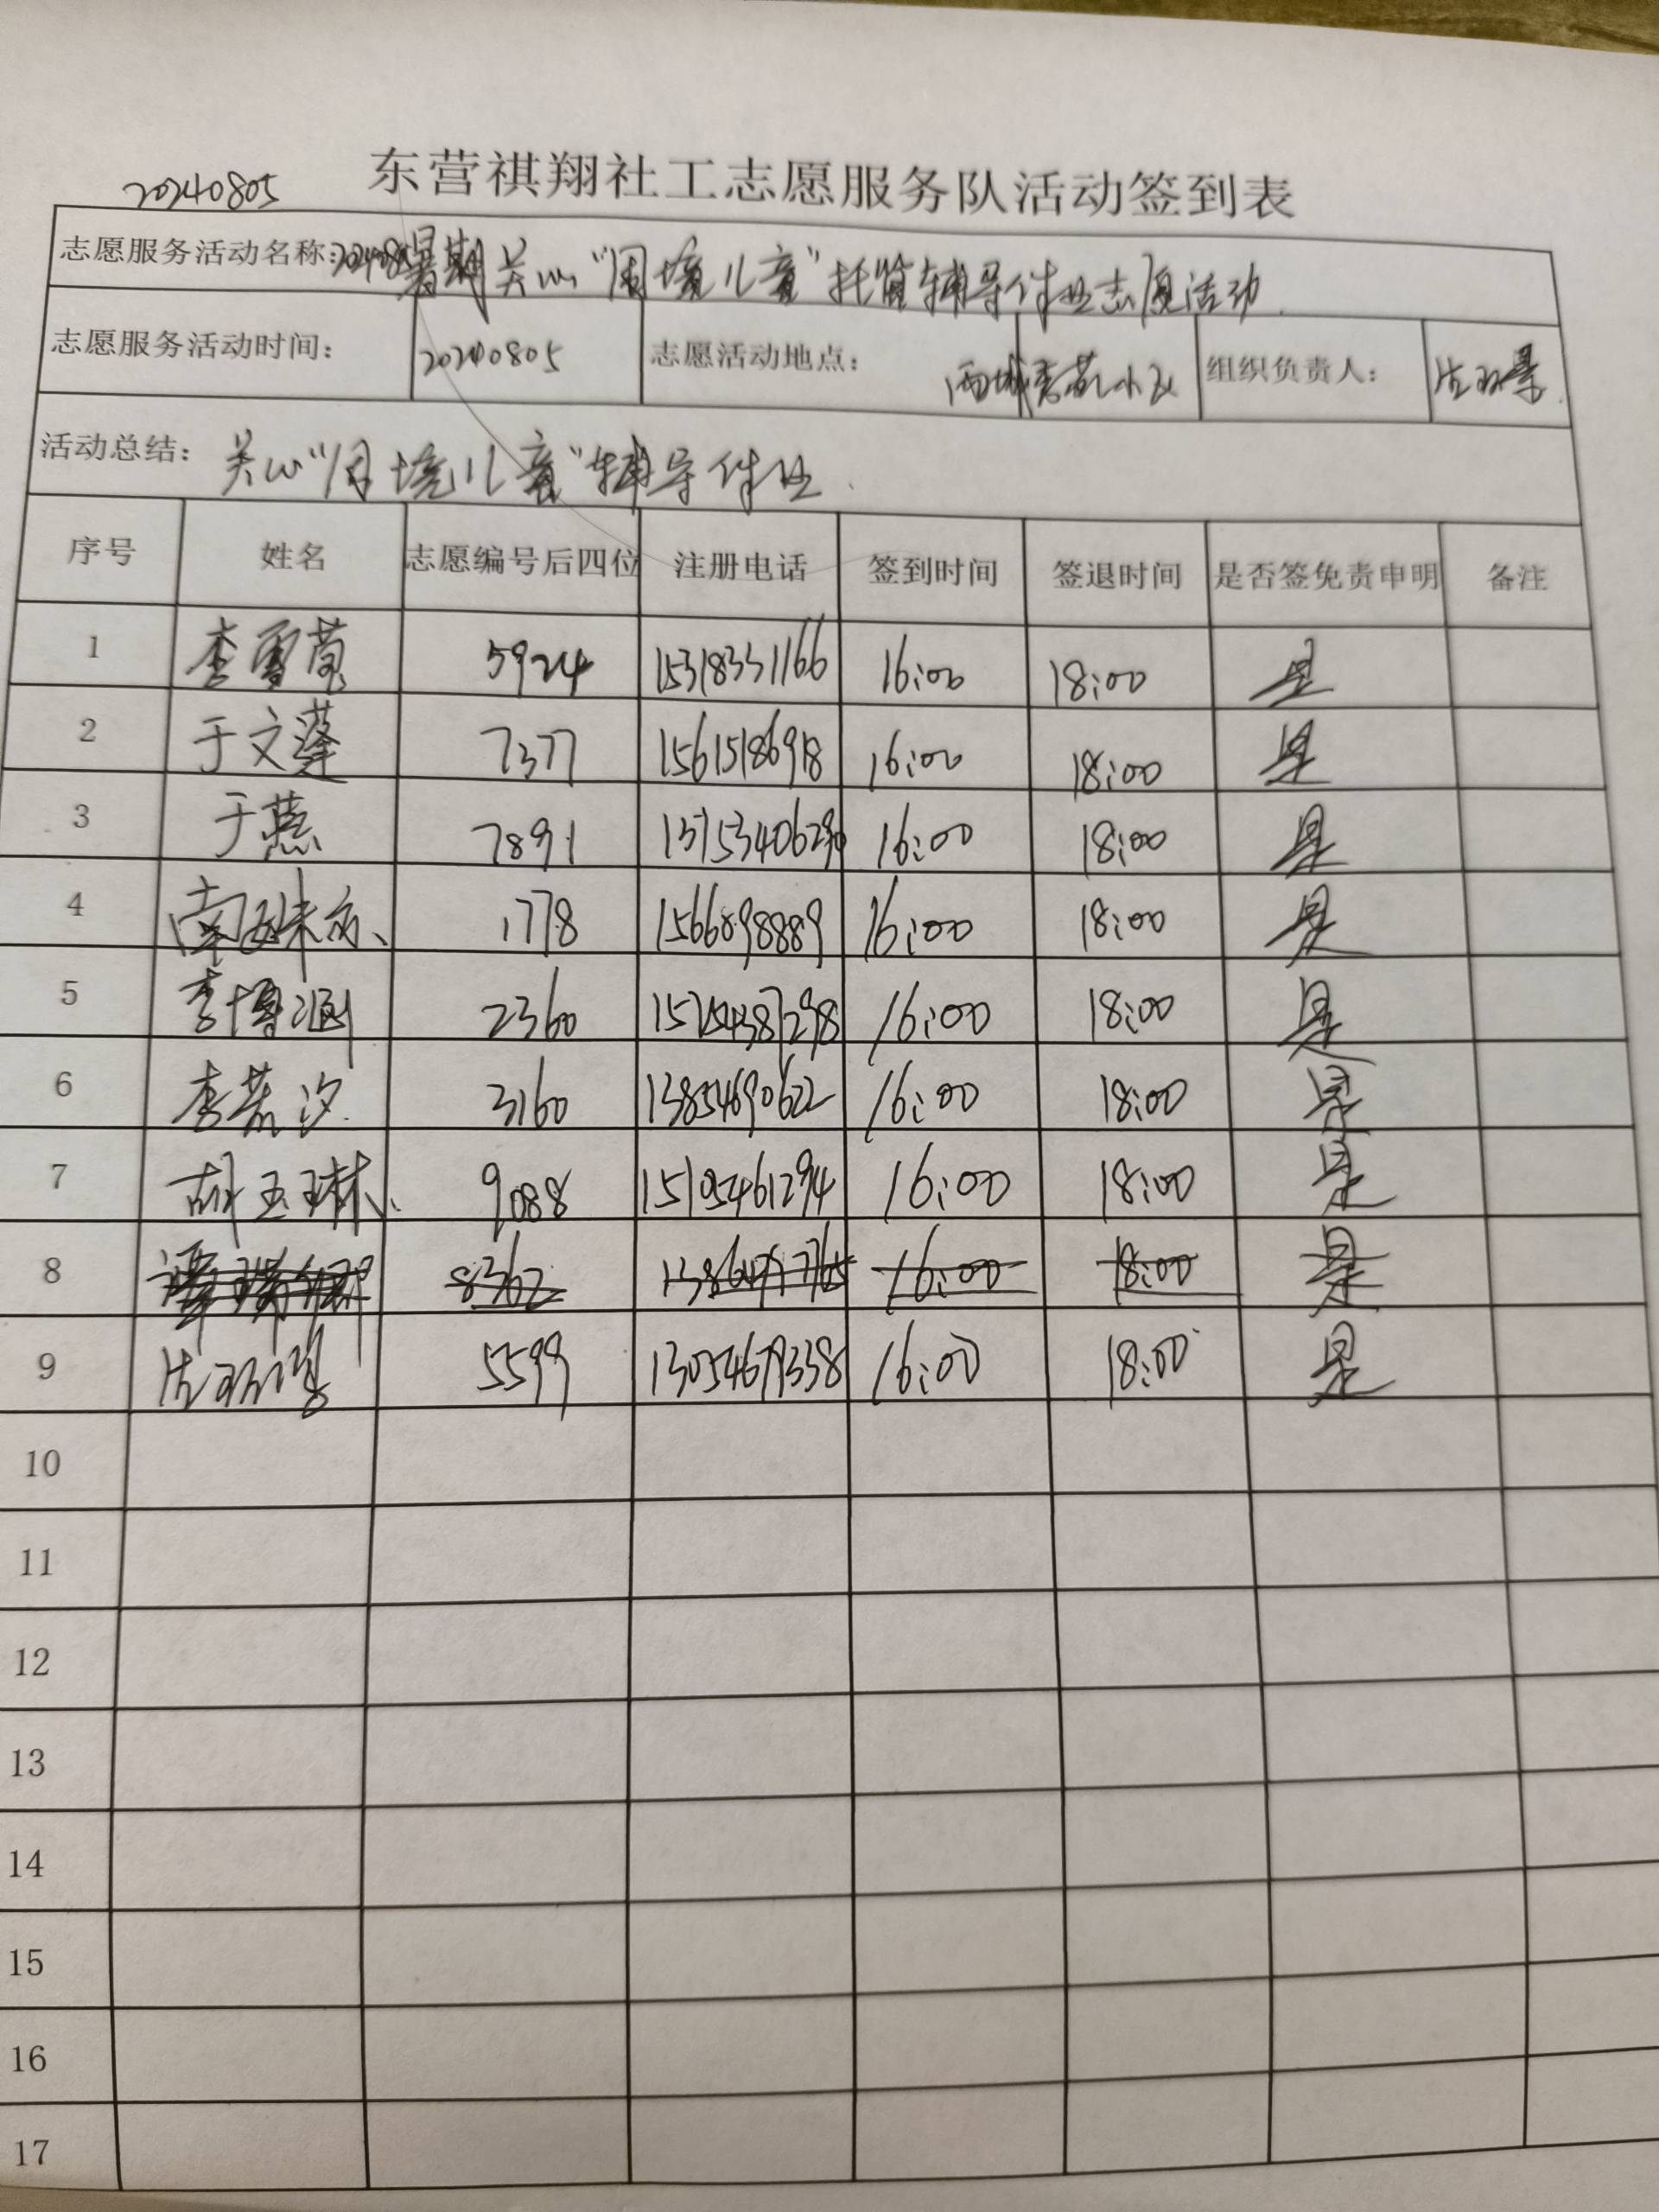 20240805 东营祺翔社工志愿服务队活动签到表
志愿服务活动名称: 20240805暑期关心“困境儿童”托管辅导作业志愿活动
志愿服务活动时间: 20240805 志愿活动地点: 西城香苑小区 组织负责人:
活动总结: 关心“困境儿童”辅导作业
序号 姓名 志愿编号后四位 注册电话 签到时间 签退时间 是否签免责申明 备注
1 李雪莹 5924 15318331166 16:00 18:00 是
2 于文蓬 7377 15615186918 16:00 18:00 是
3 于燕 7891 13153406290 16:00 18:00 是
4 1778 15668098889 16:00 18:00 是
5 李博涵 2360 16:00 18:00 是
6 李若汐 3160 13854690622 16:00 18:00 是
7 胡玉琳 9088 15105461294 16:00 18:00 是
8 8362 16:00 18:00 是
9 5599 13054679338 16:00 18:00 是
10
11
12
13
14
15
16
17